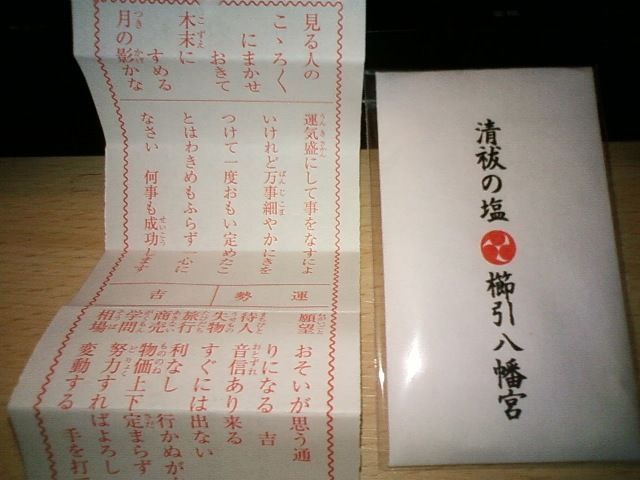 見る人の
こゝろく
にまかせ
おきて
木末に
すめる
月の影かな
運気盛にして事をなすによ
いけれど万事細やかにきを
つけて一度おもい定めたこ
とはわきめもふらず一心に
なさい 何事も成功します
運 勢 吉
願望 おそいが思う通
りになる 吉
待人 音信あり来る
失物 すぐには出ない
旅行 利なし 行かぬが
商売 物価上下定まらず
学問 努力すればよろし
相場 変動する 手を打
清祓の塩 櫛引八幡宮